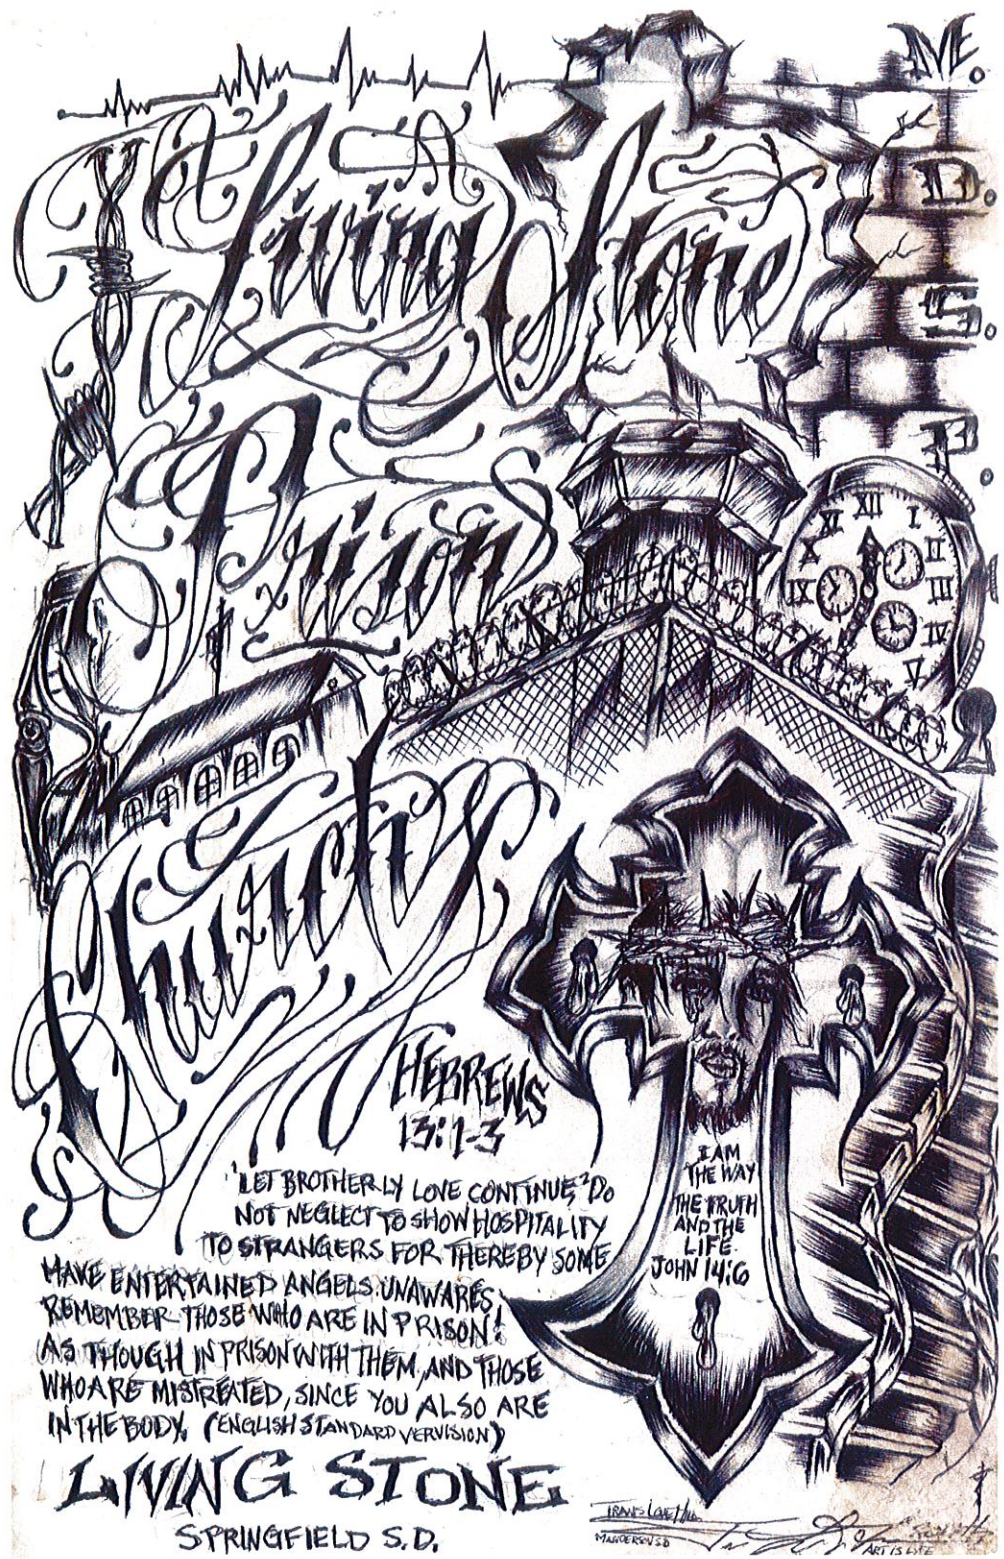 M.
D.
S.
P.
Living Stone
Prison
Church
XI XII I
X II
IX III
IV
V
HEBREWS
13:1-3
1LET BROTHERLY LOVE CONTINUE, 2DO
NOT NEGLECT TO SHOW HOSPITALITY
TO STRANGERS FOR THEREBY SOME
HAVE ENTERTAINED ANGELS. UNAWARES
REMEMBER THOSE WHO ARE IN PRISON!
AS THOUGH IN PRISON WITH THEM, AND THOSE
WHO ARE MISTREATED, SINCE YOU ALSO ARE
IN THE BODY. (ENGLISH STANDARD VERVISION)
I AM
THE WAY
THE TRUTH
AND THE
LIFE.
JOHN 14:6
LIVING STONE
SPRINGFIELD S.D.
MANDERSON SD
ART IS LIFE